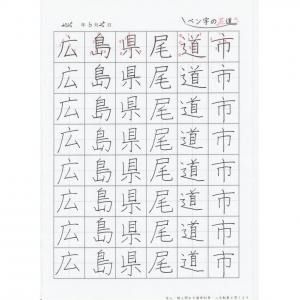 年 5月25日
ペン字の王道
広島県尾道市
広島県尾道市
広島県尾道市
広島県尾道市
広島県尾道市
広島県尾道市
広島県尾道市
広島県尾道市